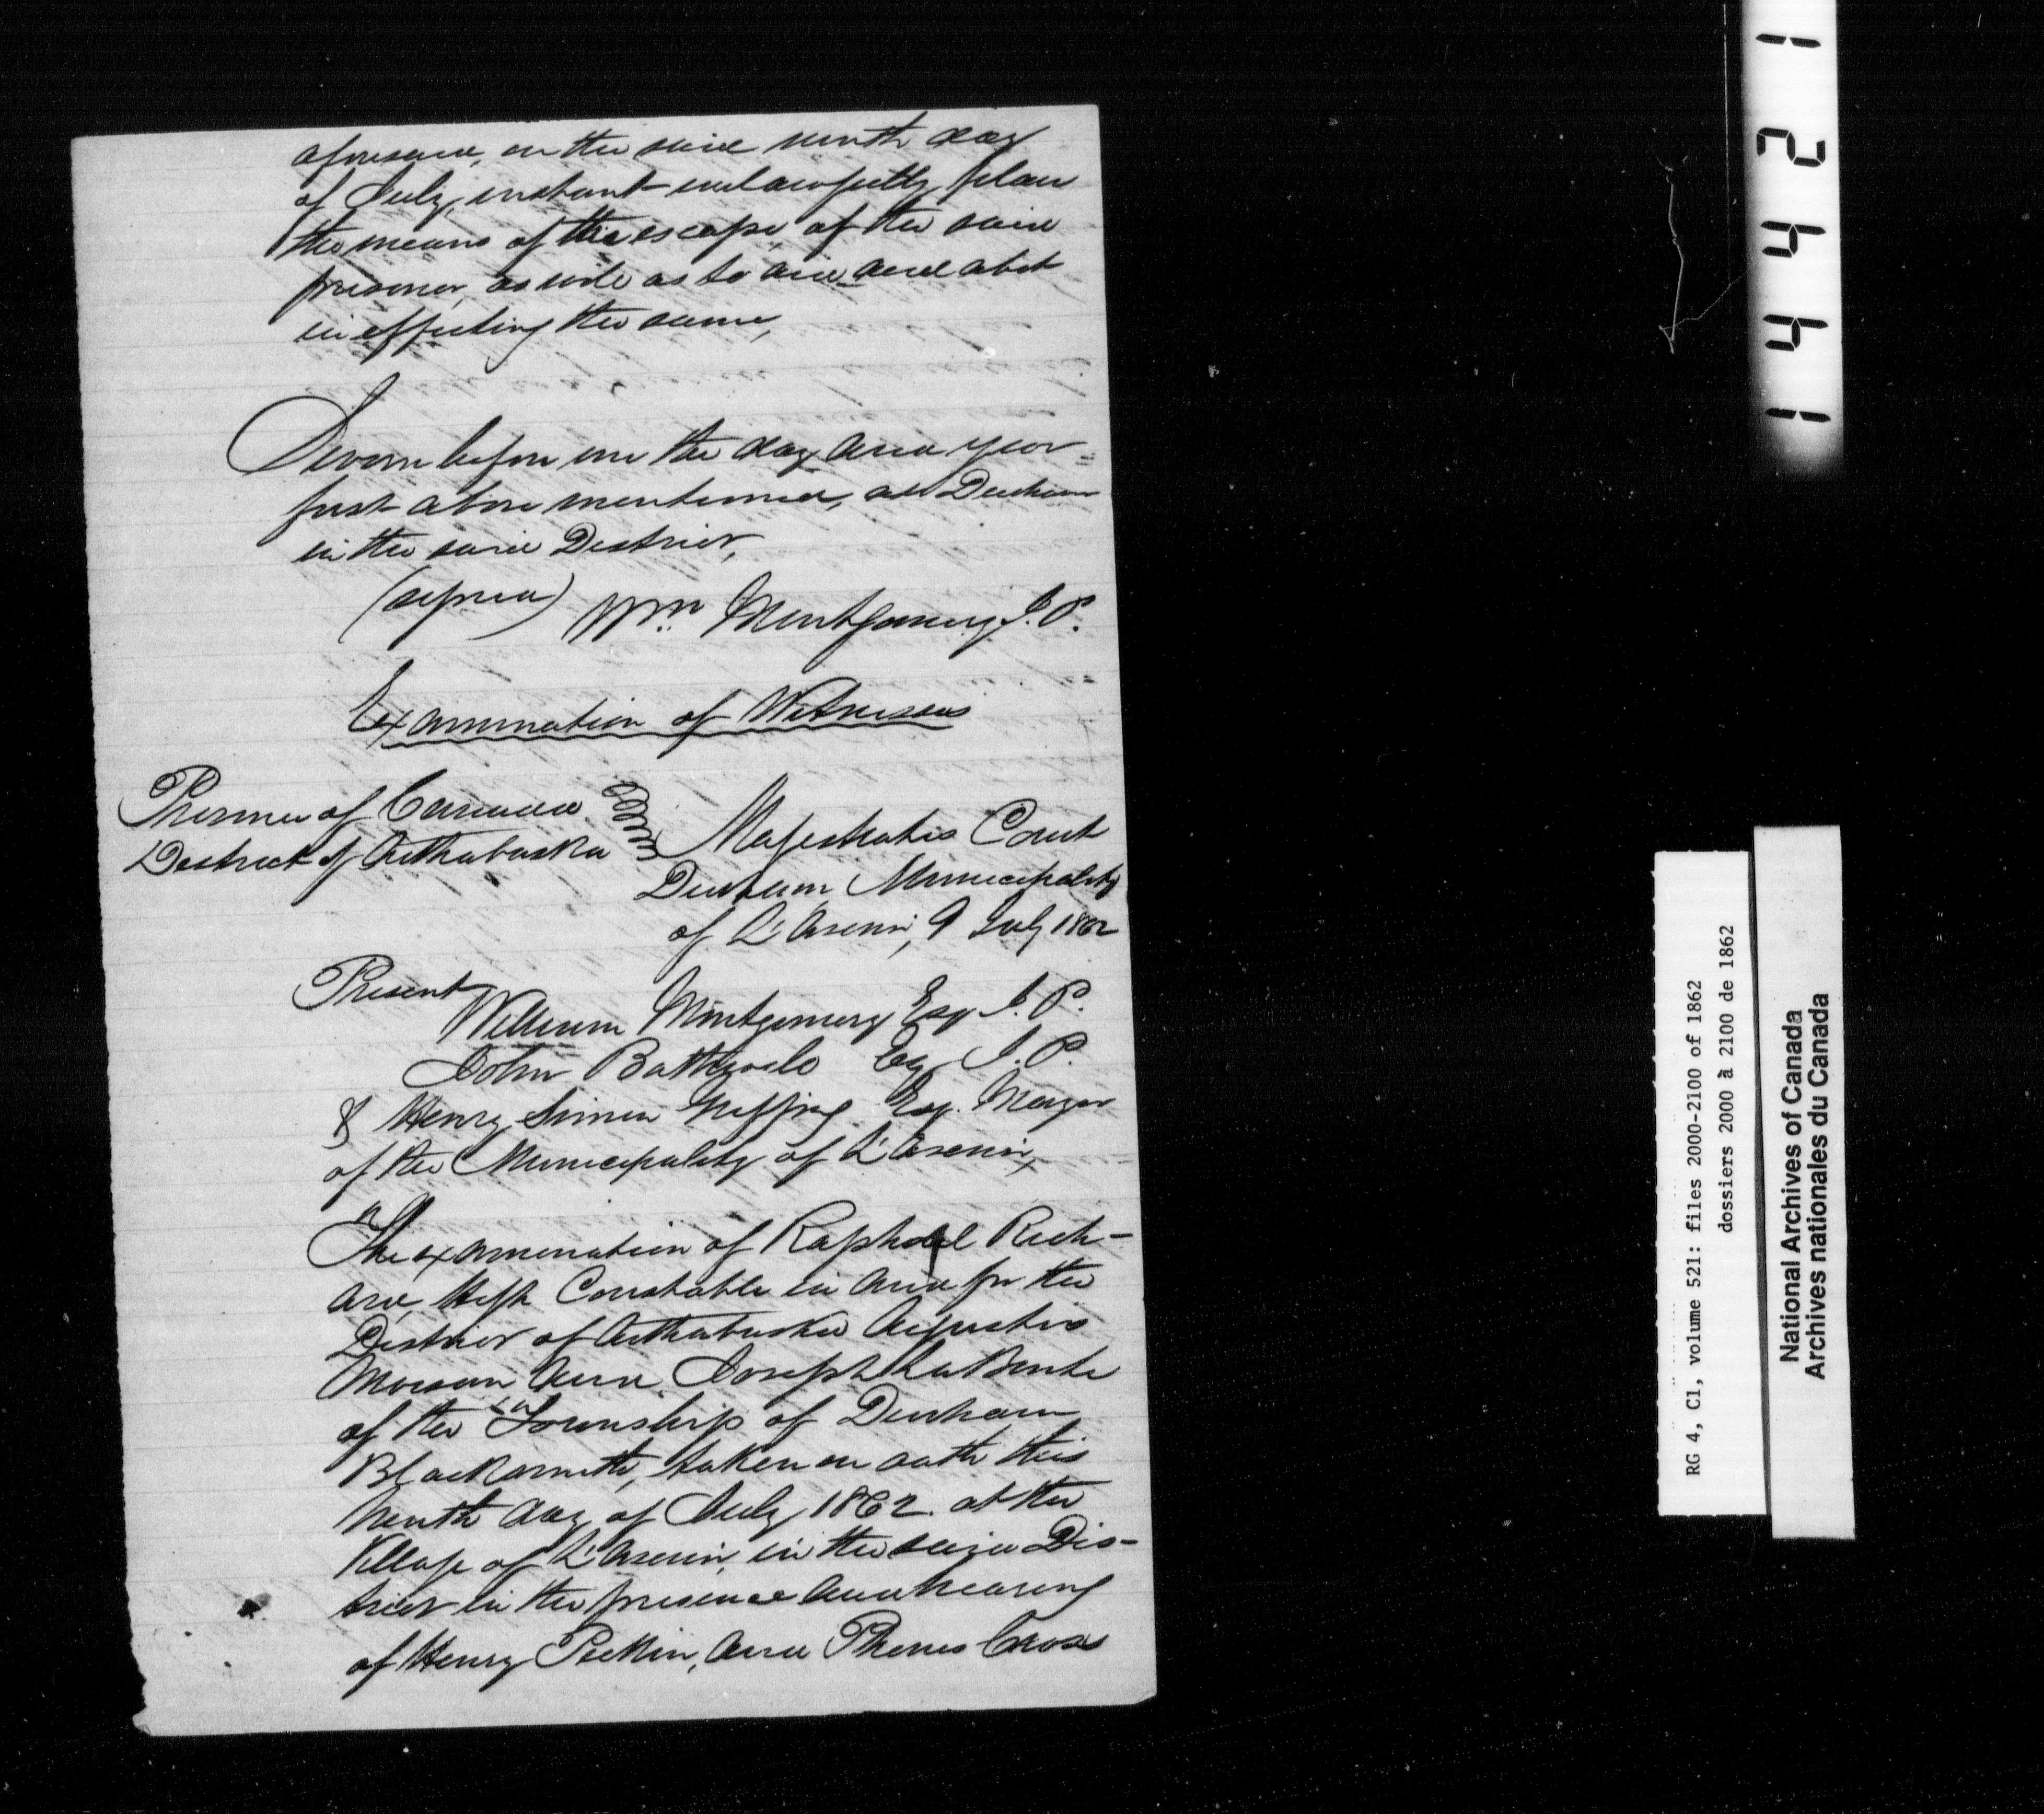 aforesaid, on the said ninth day
of July, instant unlawfully plan
the means of the escape, of the said
prisoner, as well as to aid and abet
in effecting the same,
Sworn before me the day and year
first above mentioned, at Durham
in the said District,
(signed) Wm. Montgomery J. P.
Examination of Witnesses
Province of Canada
District of Arthabaska
Magistrates Court
Durham, Municipality
of L'Avenir, 9 July 1862
Present
William Montgomery Esq J. P.
John Esq J. P.
& Henry Simon Esq. Mayor
of the Municipality of L'Avenir,
The examination of Raphael Rich-
ard, High Constable in and for the
District of Arthabaska Augustin
and Joseph
of the Township of Durham
Blacksmith, taken on oath this
Ninth day of July 1862. at the
Village of L'Avenir, in the said Dis-
trict in the presence and hearing
of Henry and Cross
1 4 4 2 1
RG 4, C1, volume 521: files 2000-2100 of 1862
dossiers 2000 à 2100 de 1862
National Archives of Canada
Archives nationales du Canada